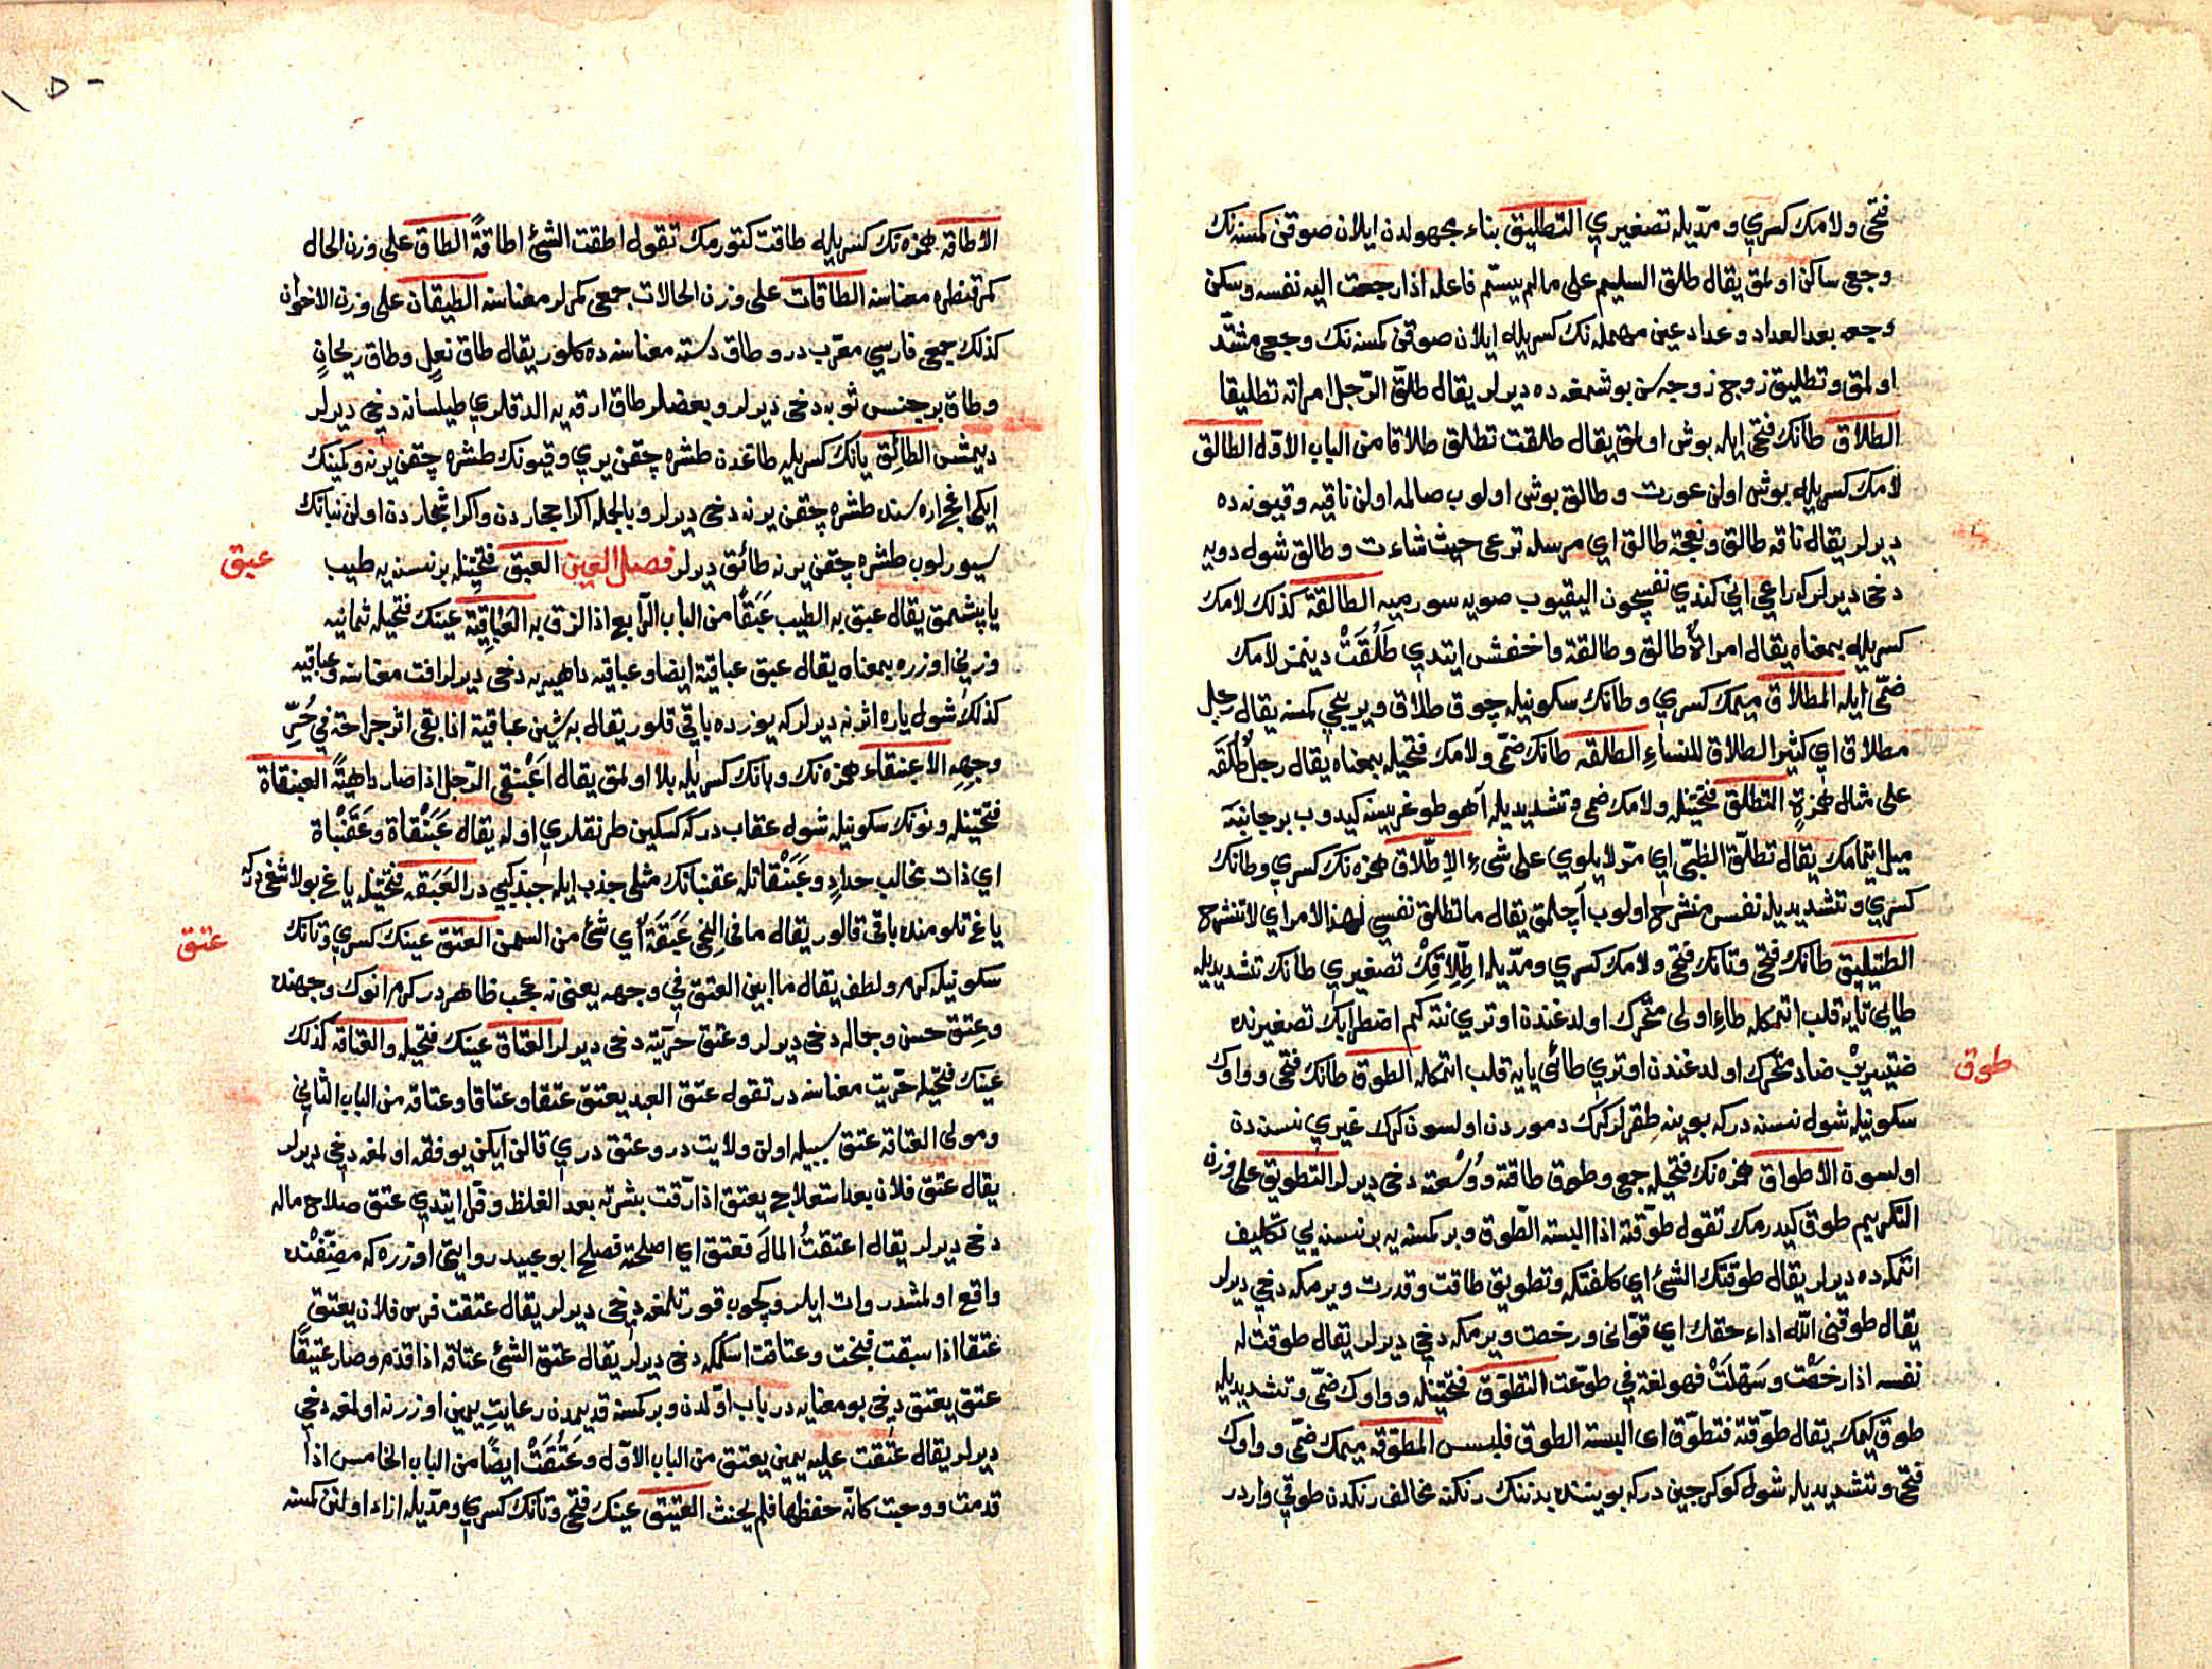 فتحی ولامك كسری و مدّیله تصغیری التطلیق بناء مجهولدن ایلان صوقن كمسنه نك
وجعی ساكن اولمق یقال طلق السلیم علی مالم یسمّ فاعله اذا رجعت الیه نفسه وسكن
وجعه بعد العداد وعداد عین مهمله نك كسریله ایلان صوقن كمسنه نك وجعی مشتدّ
اولمق وتطلیق زوج زوجه سن بوشمغه ده دیرلر یقال طلّق الرّجل امراته تطلیقا
الطلاق طانك فتحی ایله بوش اولمق یقال طلقت تطلق طلاقا من الباب الاوّل الطالق
لامك كسریله بوش اولن عورت وطالق بوش اولوب صالمه اولن ناقیه وقیونه ده
دیرلر یقال ناقة طالق ونعجة طالق ای مرسلة ترعی حیث شاءت وطالق شول دویه
دخی دیرلر كه راعی انی كندی نفسیچون الیقیوب صویه سورمیه الطالقة كذلك لامك
كسریله بمعناه یقال امراة طالق وطالقة واخفش ایتدی طَلُقَتْ دینمز لامك
ضمّی ایله المطلاق میمك كسری وطانك سكونیله چوق طلاق ویریجی كمسنه یقال رجل
مطلاق ای كثیر الطلاق للنساء الطلقه طانك ضمّی ولامك فتحیله بمعناه یقال رجل طُلَقَه
علی مثال همزة التطلّق فتحتینله ولامك ضمی وتشدیدیله آهو طوغریسنه كیدوب بر جانبه
میل ایتمامك یقال تطلّق الظبی ای مرّ لا یلوی علی شیء الاِطّلاق همزه نك كسری وطانك
كسری وتشدیدیله نفس منشرح اولوب آچلمق یقال ما تطلق نفسی لهذا الامر ای لا تنشرح
الطتیلیق طانك فتحی وتانك فتحی ولامك كسری ومدّیله اِطّلاقك تصغیری طانك تشدیدیله
طایی تایه قلب اتمكله طاء اولی متحرك اولدغندن اوتری نته كم اضطرابك تصغیرنده
ضتیریب ضاد متحرك اولدغندن اوتری طائی یایه قلب اتمكله الطوق طانك فتحی وواوك
سكونیله شول نسنه در كه بوینه طقرلر كرك دموردن اولسون كرك غیری نسنه دن
اولسون الاطواق همزه نك فتحیله جمعی وطوق طاقته ووُسْعته دخی دیرلر التطویق علی وزن
التكریم طوق كیدرمك تقول طوّقته اذا البسته الطّوق وبر كمسنه یه بر نسنه یی تكلیف
اتمكه ده دیرلر یقال طوقتك الشئ ای كلفتكه وتطویق طاقت وقدرت ویرمكه دخی دیرلر
یقال طوقنی اللّه اداء حقك ای قوّانی ورخصت ویرمكه دخی دیرلر یقال طوقت له
نفسه اذا رخصت وسَهّلَتْ فهو لغة فی طوّعت التطوّق فتحتینله وواوك ضمّی وتشدیدیله
طوق كیمك یقال طوّقته فتطوّق ای البسته الطوق فلبس المطوّقه میمك ضمّی وواوك
فتحی وتشدیدیله شول كوكرجین در كه بویننده بدننك رنكنه مخالف رنكدن طوقی واردر
طوق
١٥٠
الاطاقه همزه نك كسریله طاقت كتورمك تقول اطقت الشئ اطاقةً الطاق علی وزن الحال
كمر قنطره معناسنه الطاقات علی وزن الحالات جمعی كمرلر معناسنه الطیقان علی وزن الاخوان
كذلك جمعی فارسی معرّب در وطاق دسته معناسنه ده كلور یقال طاق نعلٍ وطاق ریحانٍ
وطاق بر جنس ثوبه دخی دیرلر وبعضلر طاق ارقه یه الدقلری طیلسانه دخی دیرلر
دیمشن الطائِق یانك كسریله طاغدن طشره چقن یری وقیونك طشره چقن یرنه وكمینك
ایكی اغجاره سنده طشره چقن یرنه دخی دیرلر وبالجمله اكر احجاردن واكر اشجاردن اولن نباتك
سیورلوب طشره چقن یرنه طائق دیرلر فصل العین العبق فتحتینله بر نسنه یه طیب
یاپشمق یقال عبق به الطیب عَبَقًا من الباب الرّابع اذا لزق به العَباقِیَة عینك فتحیله ثمانیه
وزنی اوزره بمعناه یقال عبق عباقیة ایضا وعباقیه داهیه یه دخی دیرلر افت معناسنه وعباقیه
كذلك شول یاره اثرنه دیرلر كه یوزده باقی قلور یقال به شین عباقیة اذا بقی اثر جراحة فی حُرّ
وجهه الاعبنقاء همزه نك وبانك كسریله بلا اولمق یقال اعْبَنْقی الرّجل اذا صار داهیةً العبنقاة
فتحتینله ونونك سكونیله شول عقاب در كه كسكین طرنقلری اوله یقال عَبَنْقاة وعَقَنْباة
ای ذات مخالب حدادٍ وعَبَنْقاتله عقنباتك مثلی جذب ایله جبذ كبی در العَبَقه فتحتینله یاغ بولاشغی در كه
یاغ تلومنده باقی قالور یقال ما فی النحی عَبَقَة ای شئ من السمن العتق عینك كسری وتانك
سكونیله كرم ولطف یقال ما ابین العتق فی وجهه یعنی نه عجب ظاهردر كرم انوك وجهنده
وعتق حسن وجماله دخی دیرلر وعتق حرّیته دخی دیرلر العتاق عینك فتحیله والعتاقه كذلك
عینك فتحیله حرّیت معناسنه در تقول عتق العبد یعتق عتقا وعتاقا وعتاقة من الباب الثانی
ومولی العتاقه عتق سببیله اولن ولایت در وعتق دری قالن ایكن یوفقه اولمغه دخی دیرلر
یقال عتق فلان بعد استعلاج یعتق اذا رقت بشرته بعد الغلظ وفرّا ایتدی عتق صلاح ماله
دخی دیرلر یقال اعتقتُ المالَ فعتق ای اصلحته فصلح ابو عبید روایتی اوزره كه مصنّفنده
واقع اولمشدر وات ایلرو كچوب قورتلمغه دخی دیرلر یقال عتقت فرس فلان یعتق
عتقا اذا سبقت فنجت وعتاقت اسكمكه دخی دیرلر یقال عتق الشئ عتاقة اذا قدم وصار عتیقًا
عتق یعتق دخی بو معنایه در باب اوّلدن وبر كمسنه قدیمدن رعایت یمین اوزرنه اولمغه دخی
دیرلر یقال عَتَقت علیه یمین یعتق من الباب الاوّل وعَتُقَتْ ایضًا من الباب الخامس اذا
قدمت ووجبت كانّه حفظها فلم یحنث العتیق عینك فتحی وتانك كسری ومدّیله ازاد اولنن كمسنه
عبق
عتق